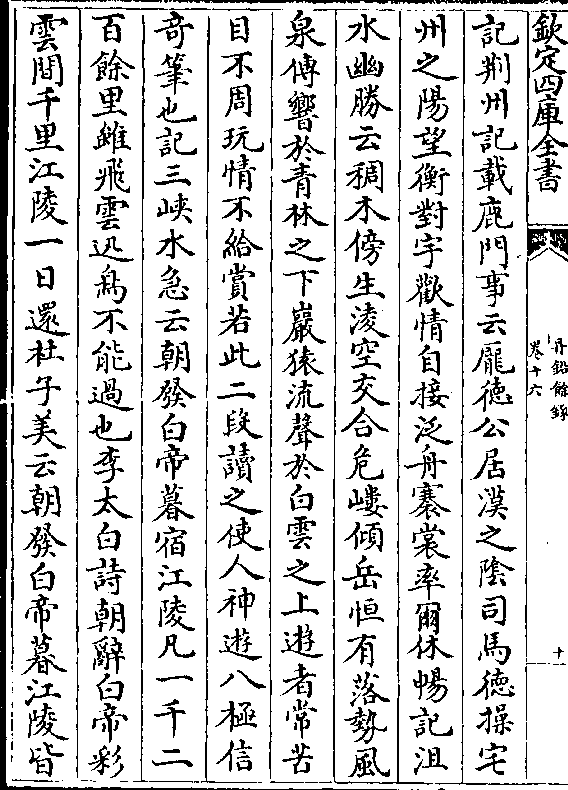 欽定四庫全書
丹鉛餘錄
卷十六
十
記荆州記載鹿門事云龐徳公居漢之陰司馬徳操宅
州之陽望衡對宇歡情自接泛舟褰裳率爾休暢記沮
水幽勝云稠木傍生淩空交合危嶁傾岳恒有落勢風
泉傳響於青林之下巖猿流聲於白雲之上遊者常苦
目不周玩情不給賞若此二段讀之使人神遊八極信
奇筆也記三峽水急云朝發白帝暮宿江陵凡一千二
百餘里雖飛雲迅鳥不能過也李太白詩朝辭白帝彩
雲間千里江陵一日還杜子美云朝發白帝暮江陵皆